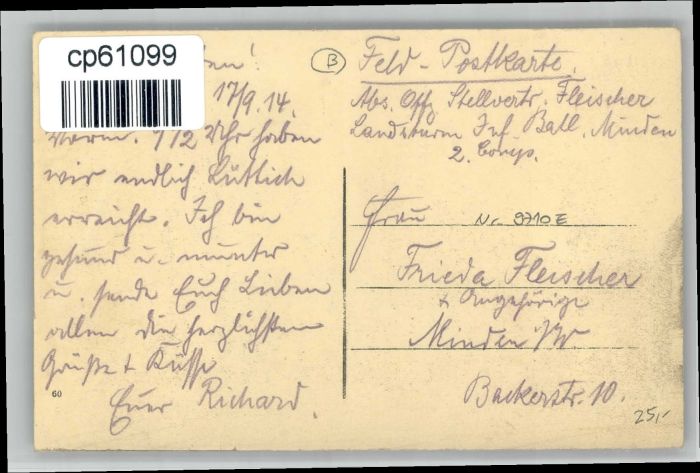 cp61099
17/9.14.
Vorm. 1/2 Uhr haben
wir endlich Lüttich
erreicht. Ich bin
gesund u. munter
u. sende Euch Lieben
allen die herzlichsten
Grüße + Küsse
Euer Richard.
60
B
Feld-Postkarte.
Abs. Off. Stellvertr. Fleischer
Landsturm Inf. Batl. Minden
2. Comp.
Frau
Nr. 9710 E
Frieda Fleischer
+ Angehörige
Minden i/W
Backerstr. 10.
25,-